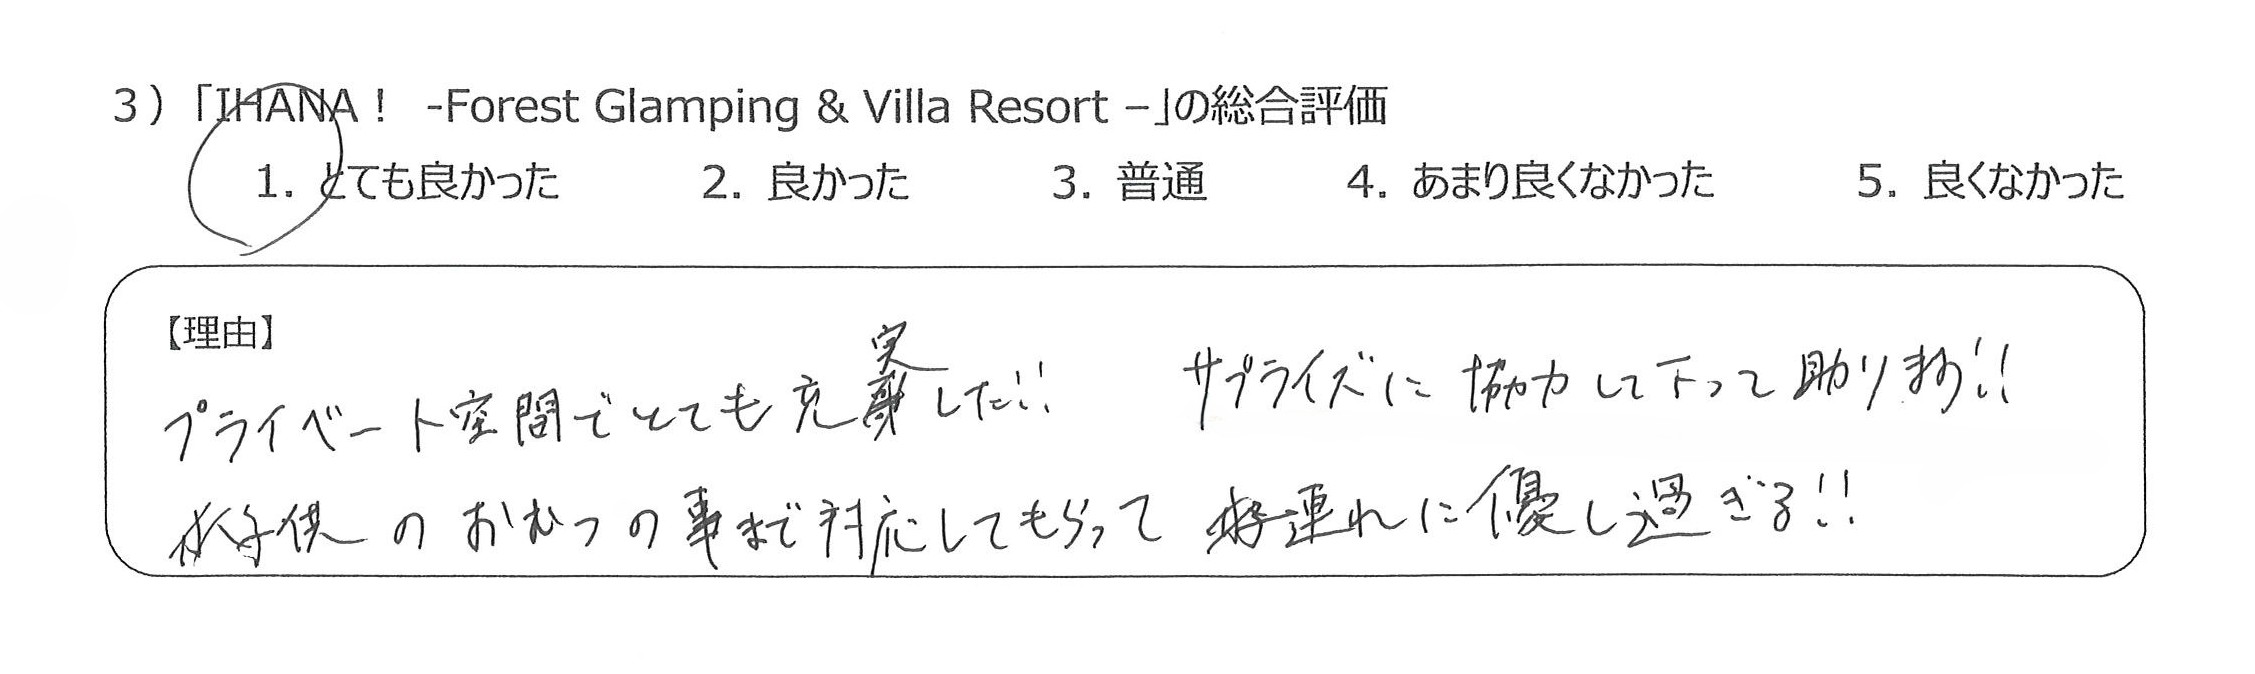 3）「IHANA！ -Forest Glamping & Villa Resort –」の総合評価
1. とても良かった 2. 良かった 3. 普通 4. あまり良くなかった 5. 良くなかった
【理由】
プライベート空間でとても充実した!! サプライズに協力して下って助ります!!
子供のおむつの事まで対応してもらって 子連れに優し過ぎる!!